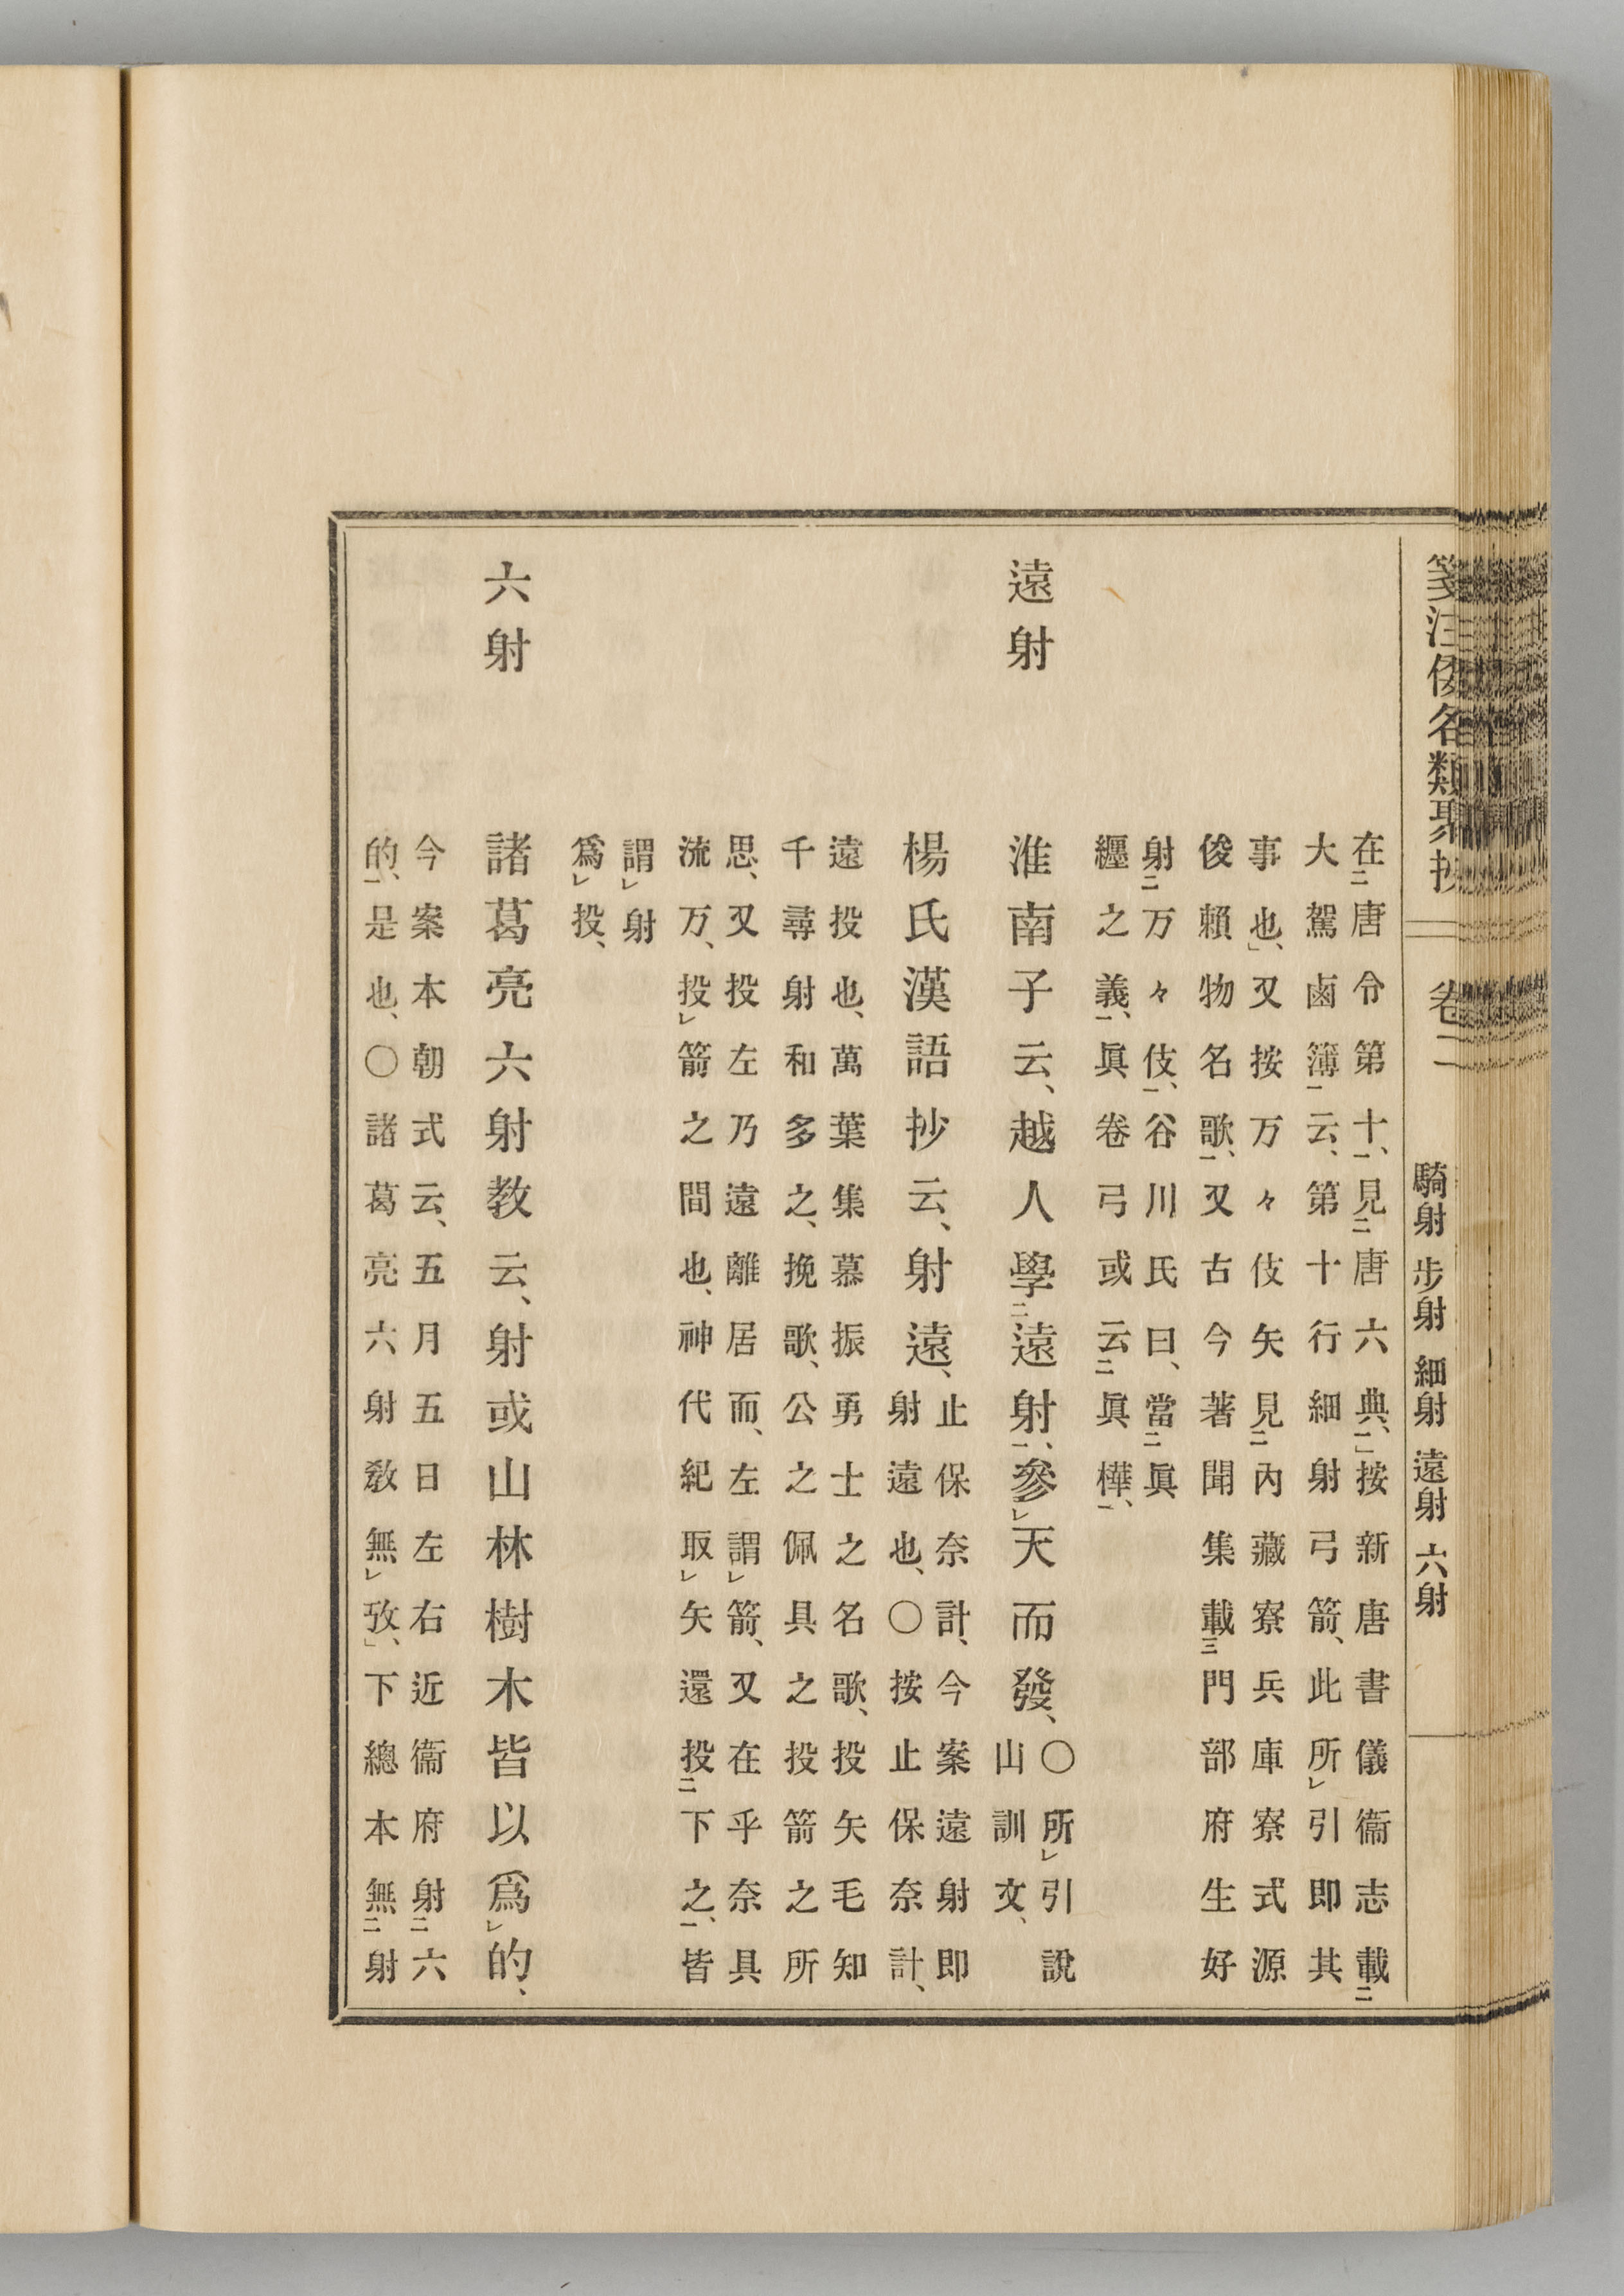 箋注倭名類聚抄 卷二 騎射 步射 細射 遠射 六射
在㆓唐令第十㆒、見㆓唐六典㆒、」按新唐書儀衞志載㆓
大駕鹵簿㆒云、第十行細射弓箭、此所㆑引即其
事也、」又按万々伎矢見㆓內藏寮兵庫寮式源
俊賴物名歌㆒、又古今著聞集載㆘門部府生好
射㆓万々伎㆒、谷川氏曰、當㆓眞
纒之義㆒、眞卷弓或云㆓眞樺㆒、
遠射
淮南子云、越人學㆓遠射㆒、參㆑天而發、
〇所㆑引說
山訓文、
楊氏漢語抄云、射遠、
止保奈計、今案遠射即
射遠也、〇按止保奈計、
遠投也、萬葉集慕振勇士之名歌、投矢毛知
千尋射和多之、挽歌、公之佩具之投箭之所
思、又投左乃遠離居而、左謂㆑箭、又在乎奈具
流万、投㆑箭之間也、神代紀取㆑矢還投㆓下之㆒、皆
謂㆑射
爲㆑投、
六射
諸葛亮六射教云、射或山林樹木皆以爲㆑的、
今案本朝式云、五月五日左右近衞府射㆓六
的㆒、是也、〇諸葛亮六射敎無㆑攷、」下總本無㆓射